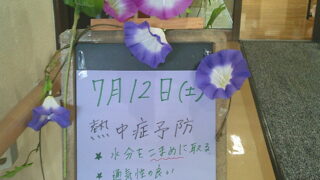 7月12日(土)
熱中症予防
★ 水分をこまめに取る
★ 通気性の良い